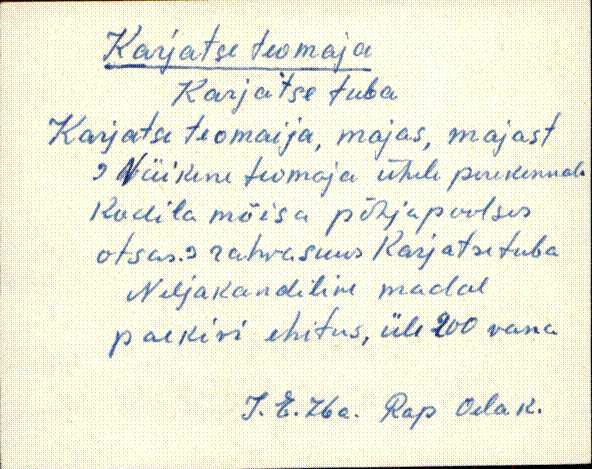 Karjatse teomaja
Karjatse tuba
Karjatse teomaija, majas, majast
Näikene teomaja ühele perekonnale
Kodila mõisa põhjapoolses
otsas. rahvasuus Karjatse tuba
Neljakandiline madal
paekivi ehitus, üle 200 vana
Rap Oela k.